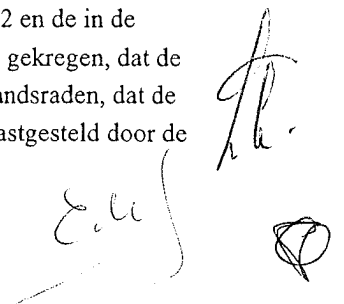 2 en de in de
gekregen, dat de
andsraden, dat de
astgesteld door de